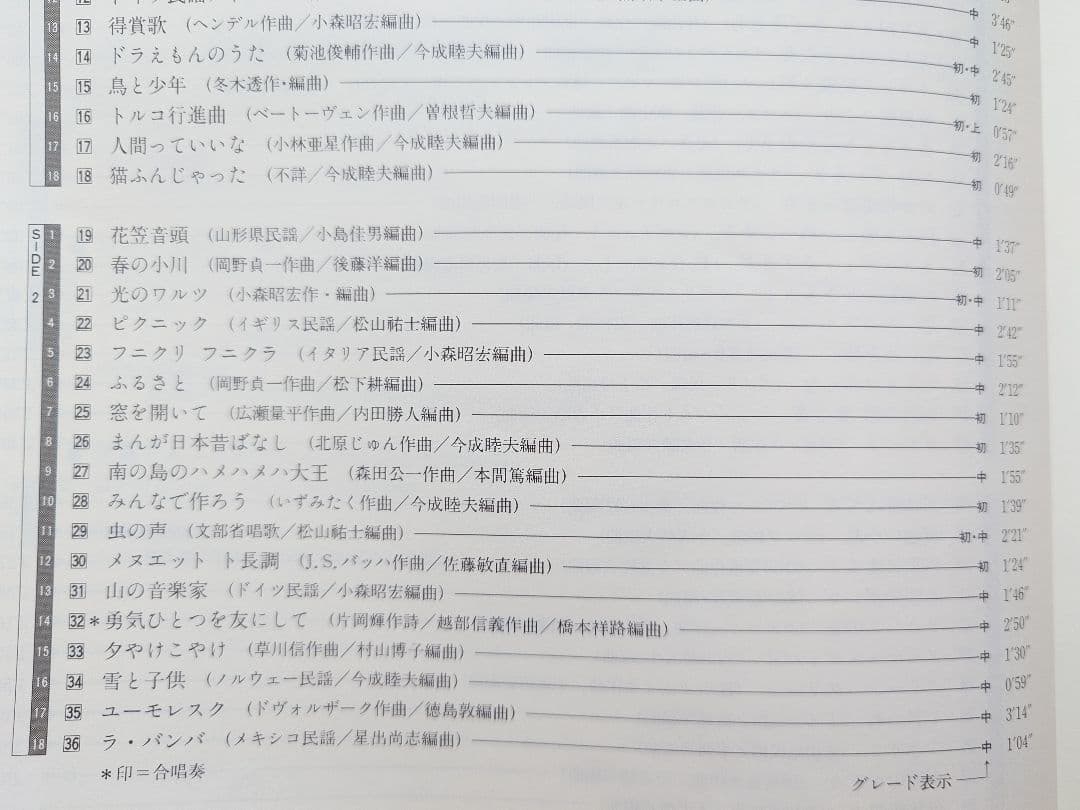 13 13 得賞歌 (ヘンデル作曲／小森昭宏編曲) 中 3′46″
14 14 ドラえもんのうた (菊池俊輔作曲／今成睦夫編曲) 中 1′25″
15 15 鳥と少年 (冬木透作・編曲) 初・中 2′45″
16 16 トルコ行進曲 (ベートーヴェン作曲／曽根哲夫編曲) 初 1′24″
17 17 人間っていいな (小林亜星作曲／今成睦夫編曲) 初・上 0′57″
18 18 猫ふんじゃった (不詳／今成睦夫編曲) 初 2′16″
初 0′49″
SIDE 2
1 19 花笠音頭 (山形県民謡／小島佳男編曲) 中 1′37″
2 20 春の小川 (岡野貞一作曲／後藤洋編曲) 初 2′05″
3 21 光のワルツ (小森昭宏作・編曲) 初・中 1′11″
4 22 ピクニック (イギリス民謡／松山祐士編曲) 中 2′42″
5 23 フニクリ フニクラ (イタリア民謡／小森昭宏編曲) 中 1′55″
6 24 ふるさと (岡野貞一作曲／松下耕編曲) 中 2′12″
7 25 窓を開いて (広瀬量平作曲／内田勝人編曲) 初 1′10″
8 26 まんが日本昔ばなし (北原じゅん作曲／今成睦夫編曲) 初 1′35″
9 27 南の島のハメハメハ大王 (森田公一作曲／本間篤編曲) 中 1′55″
10 28 みんなで作ろう (いずみたく作曲／今成睦夫編曲) 初 1′39″
11 29 虫の声 (文部省唱歌／松山祐士編曲) 初・中 2′21″
12 30 メヌエット ト長調 (J.S.バッハ作曲／佐藤敏直編曲) 初 1′24″
13 31 山の音楽家 (ドイツ民謡／小森昭宏編曲) 中 1′46″
14 32 *勇気ひとつを友にして (片岡輝作詩／越部信義作曲／橋本祥路編曲) 中 2′50″
15 33 夕やけこやけ (草川信作曲／村山博子編曲) 中 1′30″
16 34 雪と子供 (ノルウェー民謡／今成睦夫編曲) 中 0′59″
17 35 ユーモレスク (ドヴォルザーク作曲／徳島敦編曲) 中 3′14″
18 36 ラ・バンバ (メキシコ民謡／星出尚志編曲) 中 1′04″
*印＝合唱奏
グレード表示